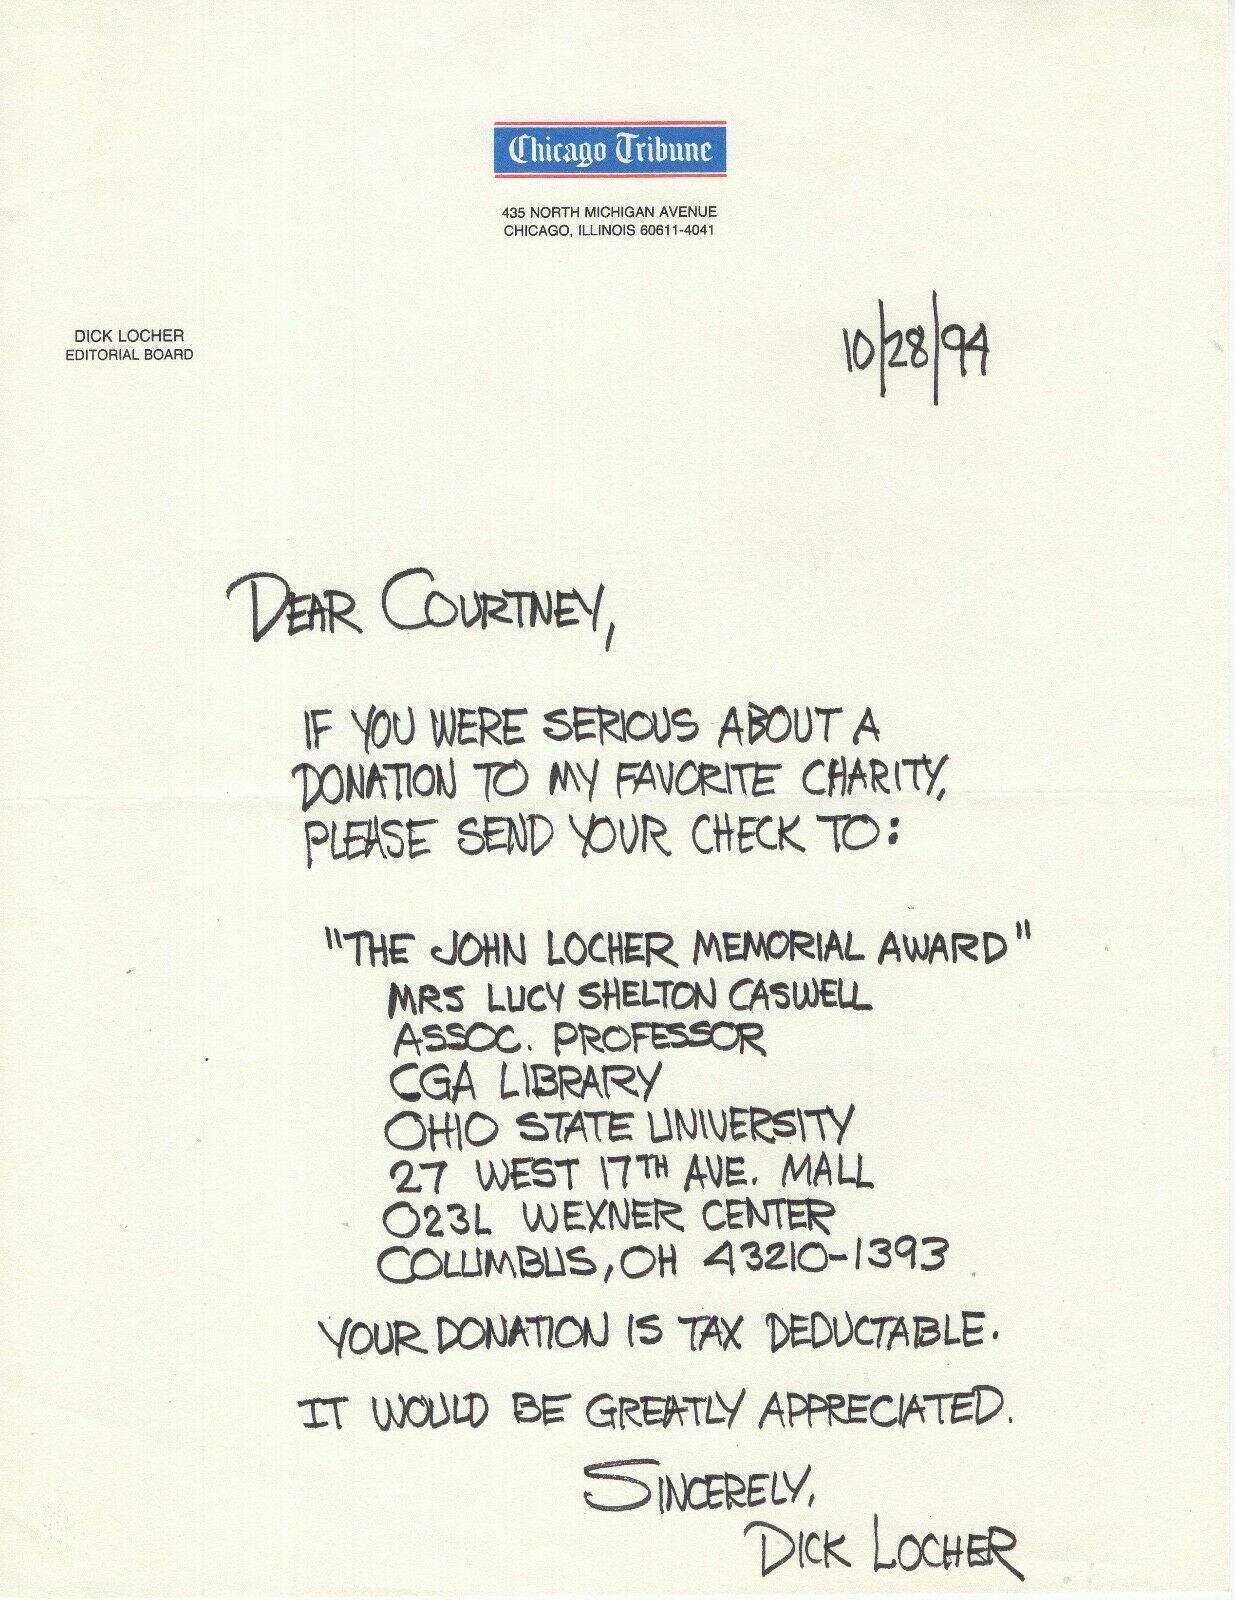 Chicago Tribune
435 NORTH MICHIGAN AVENUE
CHICAGO, ILLINOIS 60611-4041
DICK LOCHER
EDITORIAL BOARD
10/28/94
DEAR COURTNEY,
IF YOU WERE SERIOUS ABOUT A
DONATION TO MY FAVORITE CHARITY,
PLEASE SEND YOUR CHECK TO:
"THE JOHN LOCHER MEMORIAL AWARD"
MRS LUCY SHELTON CASWELL
ASSOC. PROFESSOR
CGA LIBRARY
OHIO STATE UNIVERSITY
27 WEST 17TH AVE. MALL
023L WEXNER CENTER
COLUMBUS, OH 43210-1393
YOUR DONATION IS TAX DEDUCTABLE.
IT WOULD BE GREATLY APPRECIATED.
SINCERELY,
DICK LOCHER